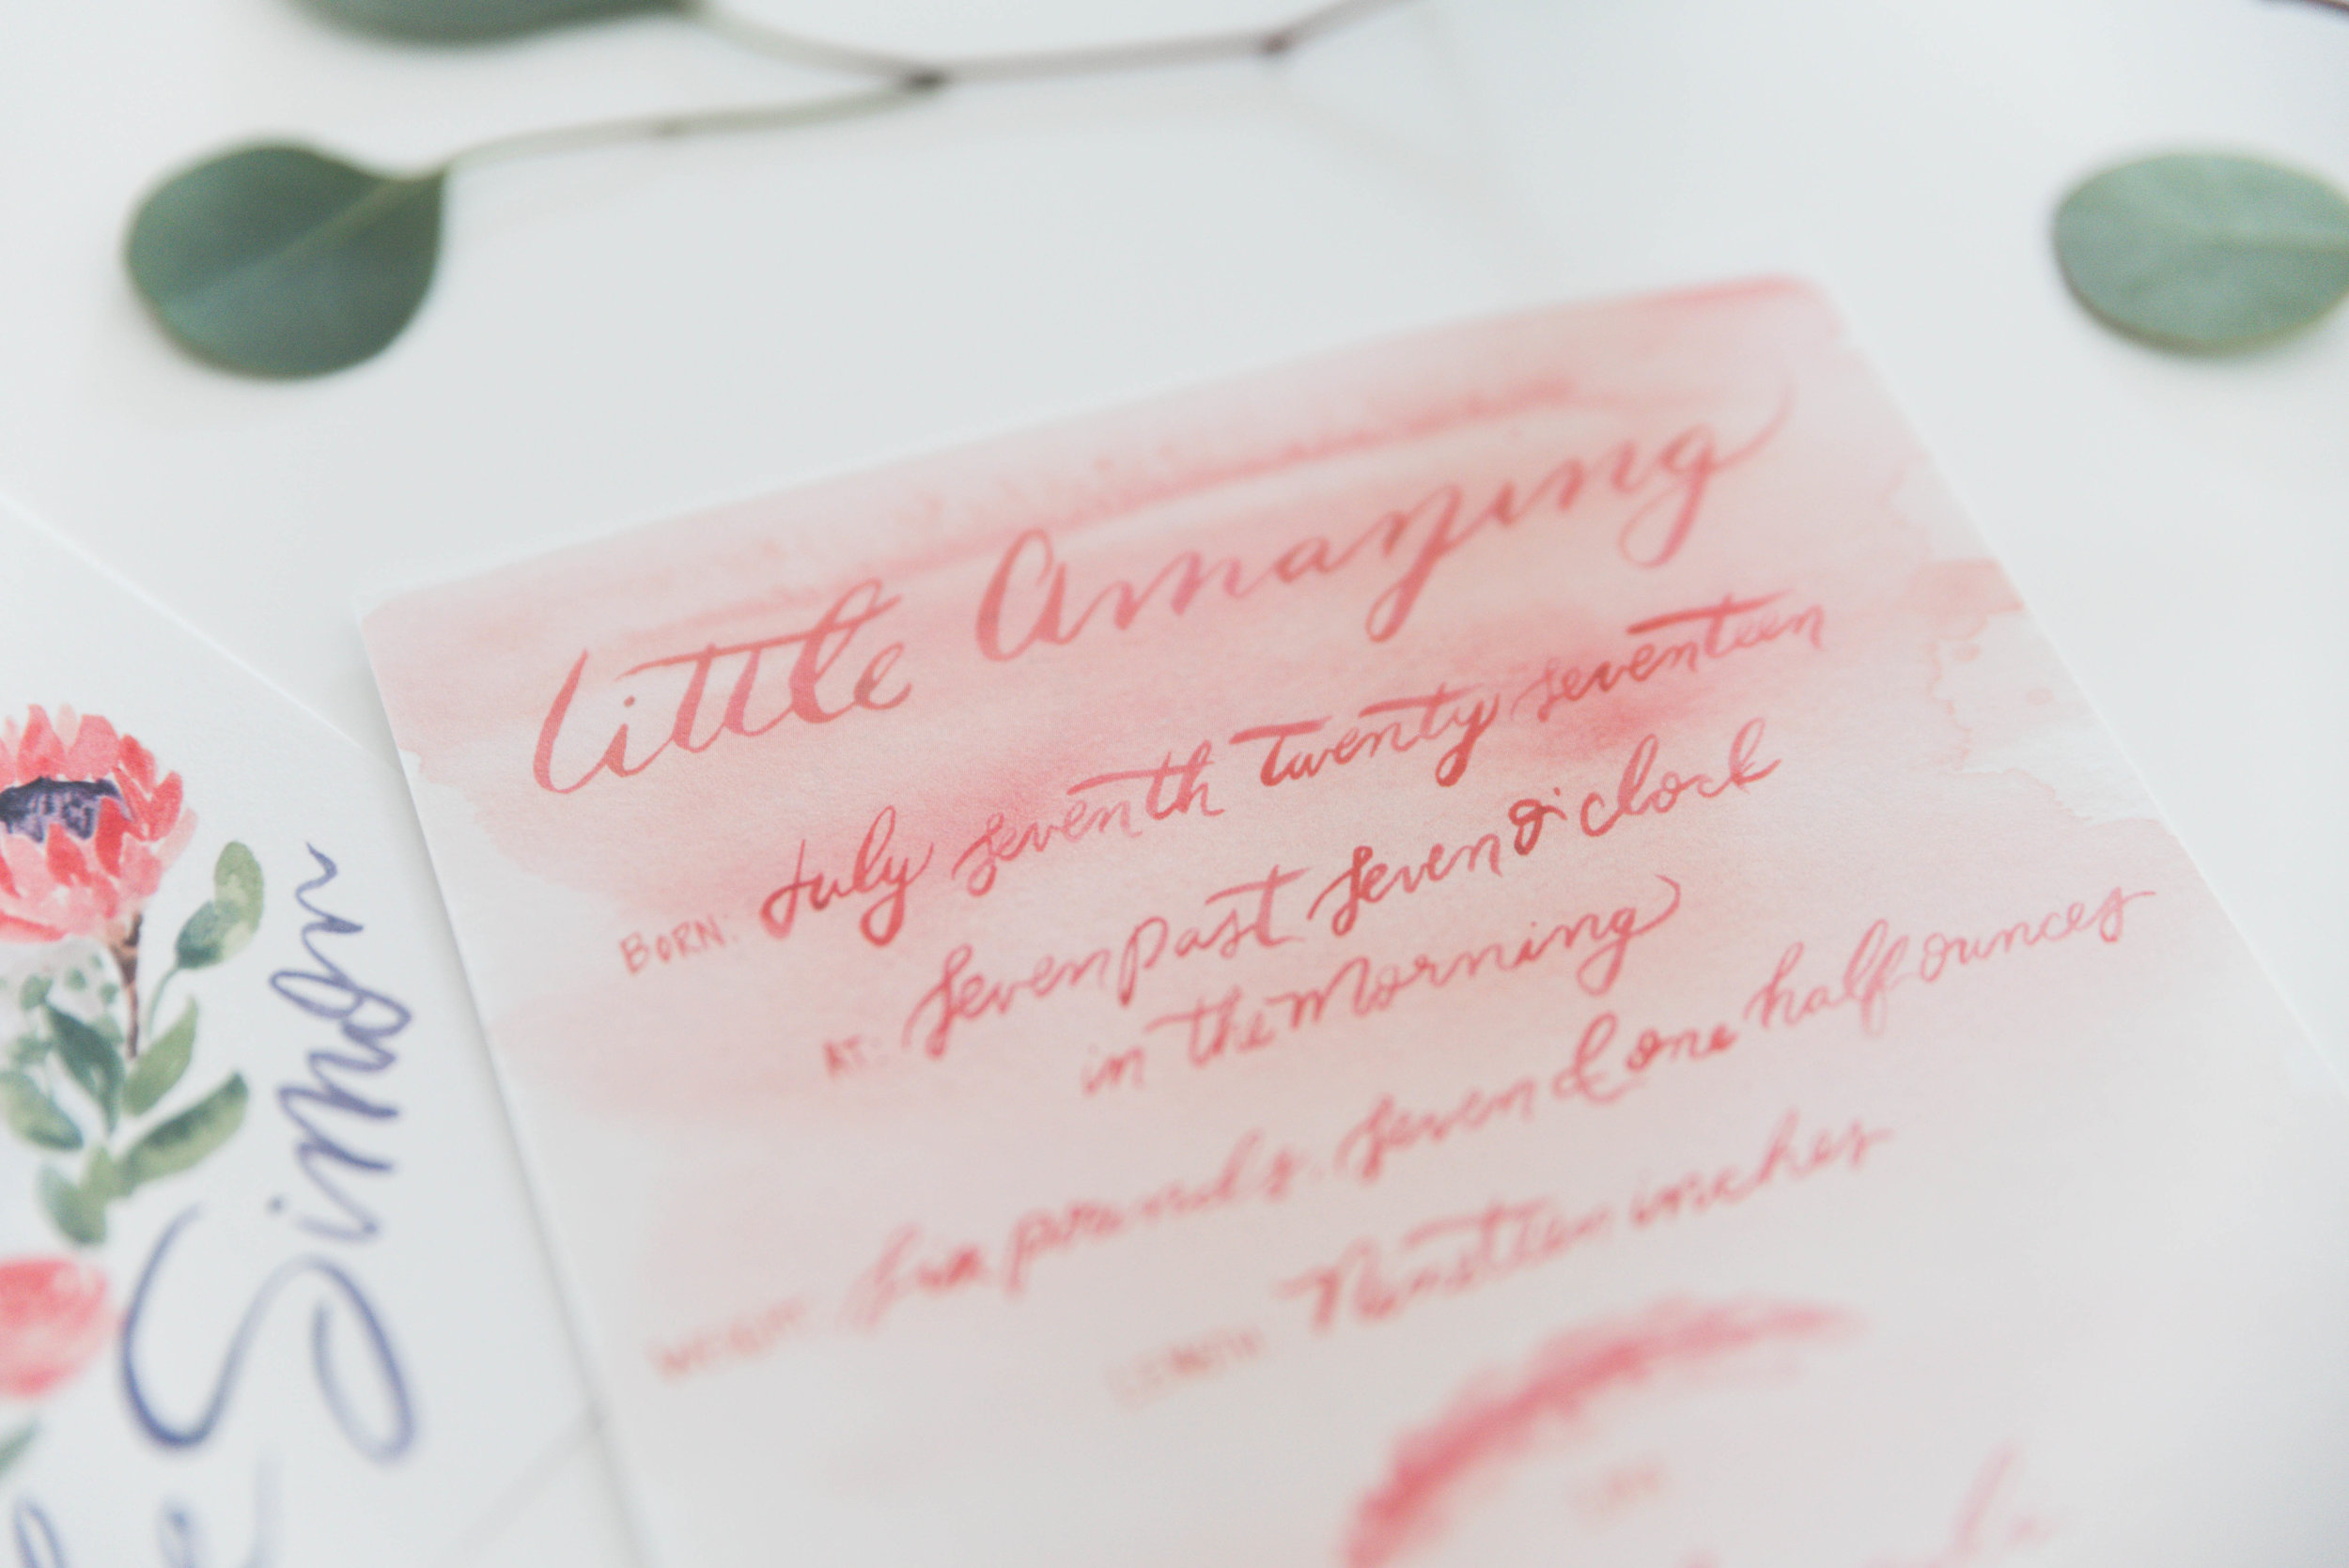 Little Amazing
BORN: July seventh twenty seventeen
AT: Seven past seven o'clock
in the morning
WEIGHT: Six pounds, seven & one half ounces
LENGTH: Nineteen inches
Simon